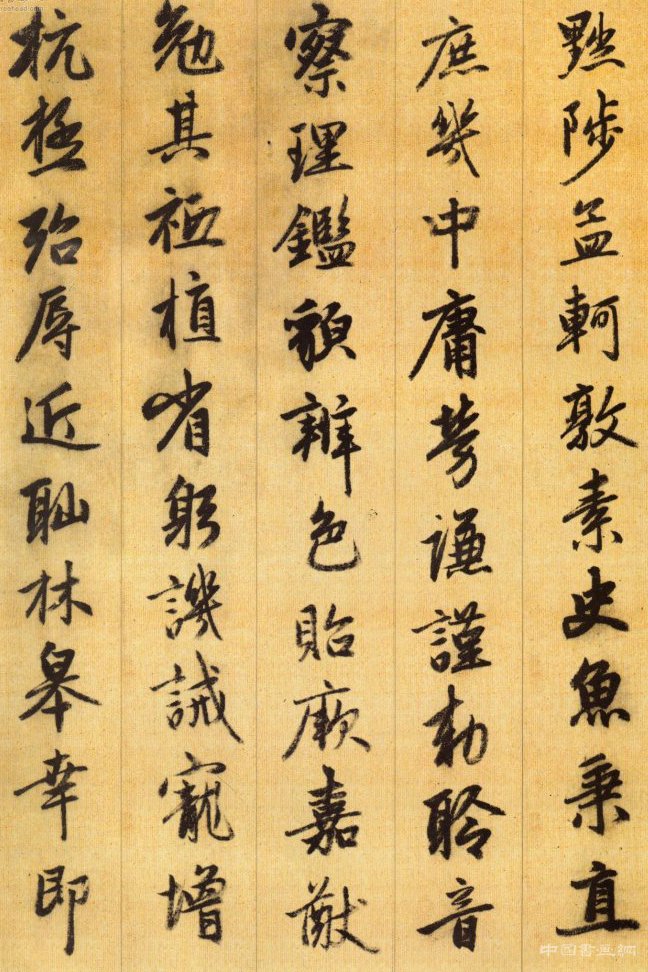 黜陟孟軻敦素史魚秉直
庶幾中庸勞謙謹勅聆音
察理鑑貌辨色貽厥嘉猷
勉其祗植省躬譏誡寵增
抗極殆辱近恥林皋幸即
中国書画網